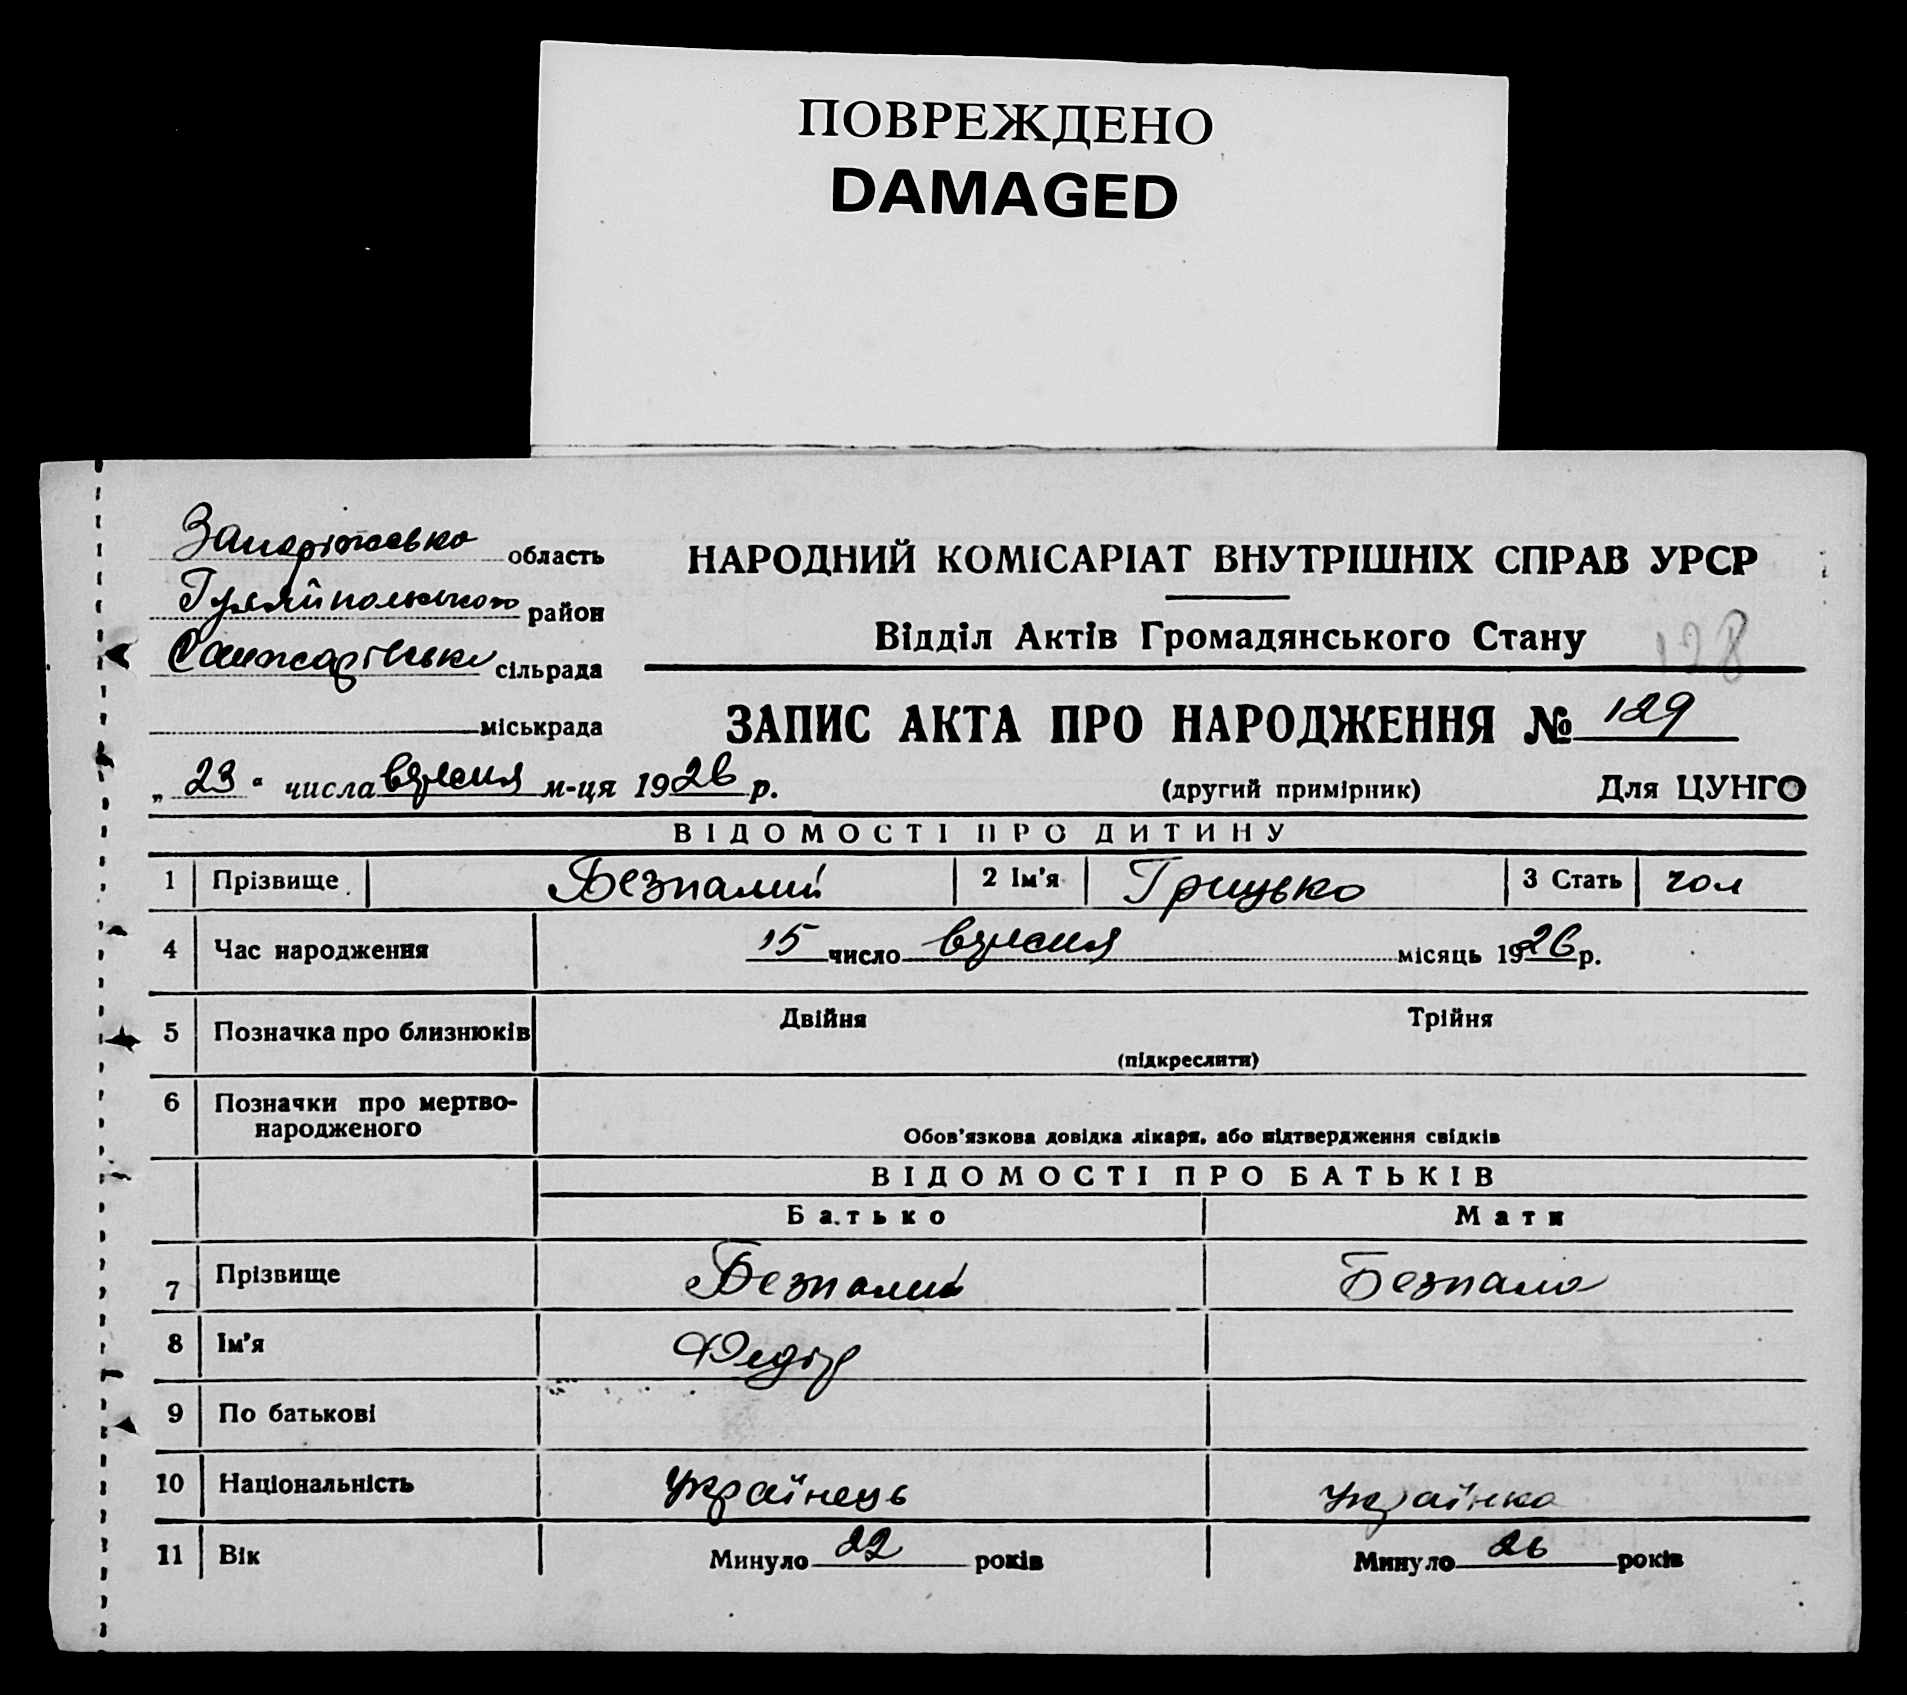 ПОВРЕЖДЕНО
DAMAGED
Запорізька область
Гуляйпольського район
Санжарівська сільрада
міськрада
НАРОДНИЙ КОМІСАРІАТ ВНУТРІШНІХ СПРАВ УРСР
Відділ Актів Громадянського Стану
128
ЗАПИС АКТА ПРО НАРОДЖЕННЯ № 129
„ 23 “ числа вересня м-ця 1926 р.
(другий примірник) Для ЦУНГО
ВІДОМОСТІ ПРО ДИТИНУ
1 Прізвище Безпалий 2 Ім'я Грицько 3 Стать чол
4 Час народження 15 число вересня місяць 1926 р.
5 Позначка про близнюків Двійня Трійня
(підкреслити)
6 Позначки про мертво-
народженого
Обов'язкова довідка лікаря, або підтвердження свідків
ВІДОМОСТІ ПРО БАТЬКІВ
Батько Мати
7 Прізвище Безпалий Безпала
8 Ім'я Федір
9 По батькові
10 Національність українець українка
11 Вік Минуло 22 років Минуло 26 років